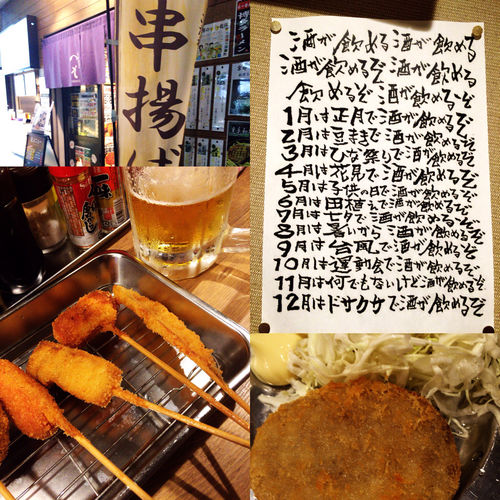 串揚げ
酒が飲める酒が飲める
酒が飲めるぞ酒が飲める
飲めるぞ酒が飲めるぞ
1月は正月で酒が飲めるぞ
2月は豆まきで酒が飲めるぞ
3月はひな祭りで酒が飲めるぞ
4月は花見で酒が飲めるぞ
5月は子供の日で酒が飲めるぞ
6月は田植えで酒が飲めるぞ
7月は七夕で酒が飲めるぞ
8月は暑いから酒が飲めるぞ
9月は台風で酒が飲めるぞ
10月は運動会で酒が飲めるぞ
11月は何でもないけど酒が飲めるぞ
12月はドサクサで酒が飲めるぞ